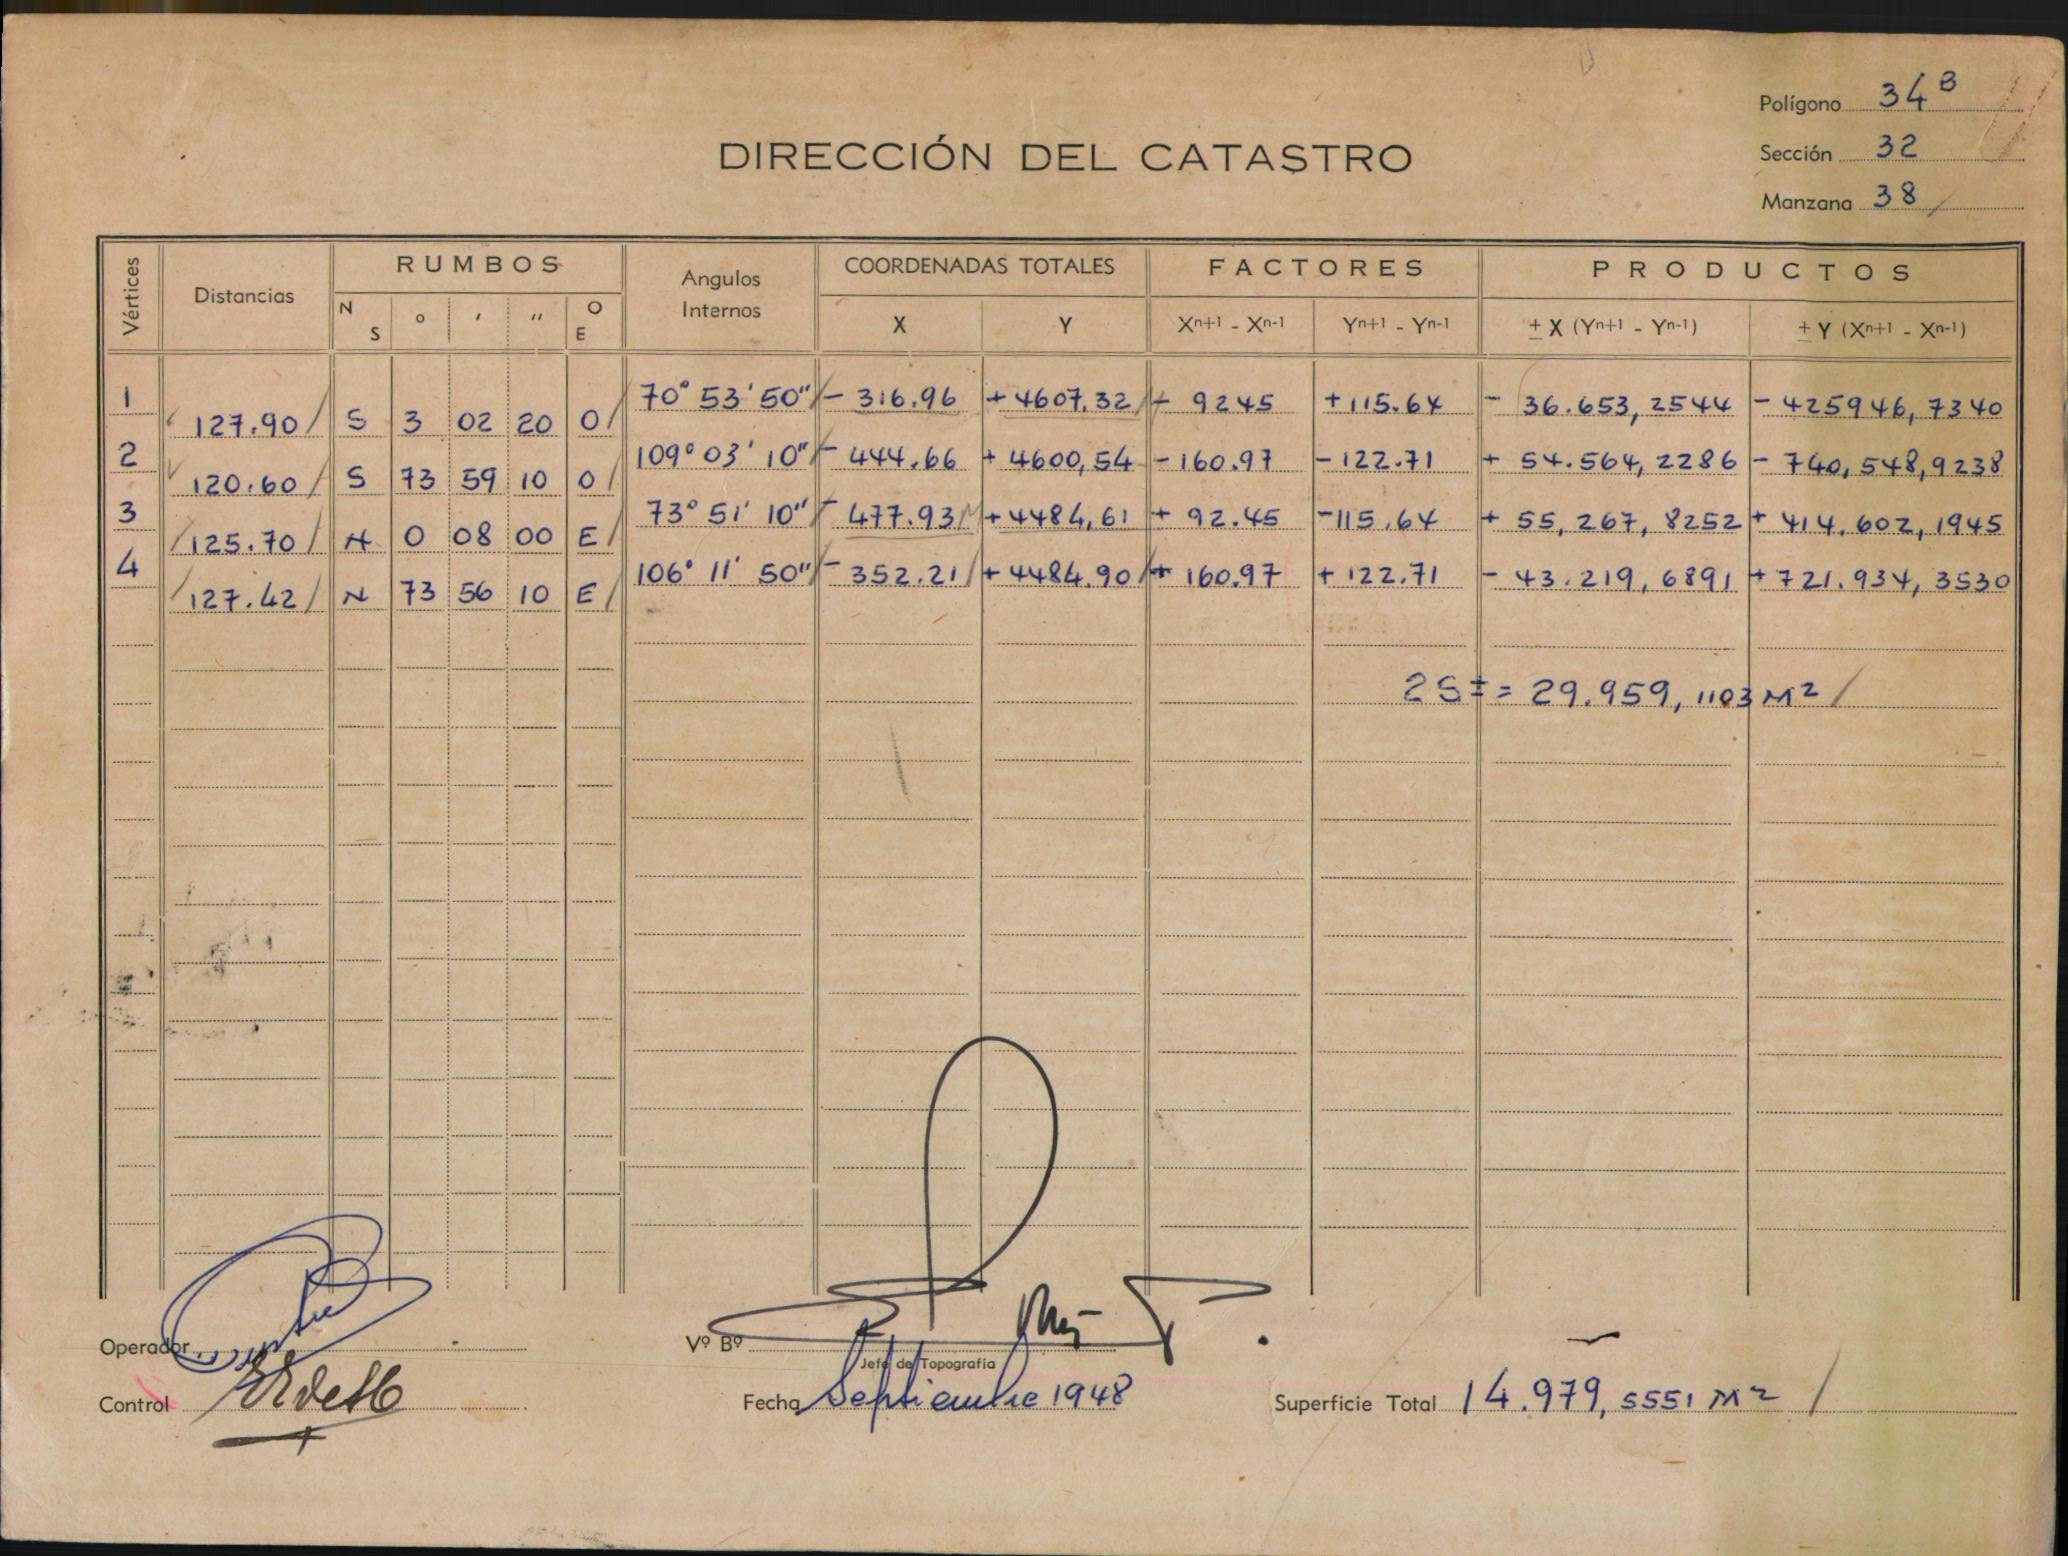 Polígono 34 B
DIRECCIÓN DEL CATASTRO
Sección 32
Manzana 38
Vértices Distancias RUMBOS Angulos Internos COORDENADAS TOTALES FACTORES PRODUCTOS
N S ° ' '' O E X Y Xn+1 - Xn-1 Yn+1 - Yn-1 ± X (Yn+1 - Yn-1) ± Y (Xn+1 - Xn-1)
1 70° 53' 50" - 316.96 + 4607,32 - 9245 + 115.64 - 36.653,2544 - 425946,7340
127.90 S 3 02 20 O
2 109° 03' 10" - 444.66 + 4600,54 - 160.97 - 122.71 + 54.564,2286 - 740,548,9238
120.60 S 73 59 10 O
3 73° 51' 10" - 477.93 + 4484,61 + 92.45 - 115.64 + 55,267,8252 + 414.602,1945
125.70 N 0 08 00 E
4 106° 11' 50" - 352.21 + 4484.90 + 160.97 + 122.71 - 43.219,6891 + 721.934,3530
127.42 N 73 56 10 E
2S ± = 29.959,1103 M²
Operador
Vº Bº
Jefe de Topografía
Control
Fecha Septiembre 1948
Superficie Total 14.979,5551 M²